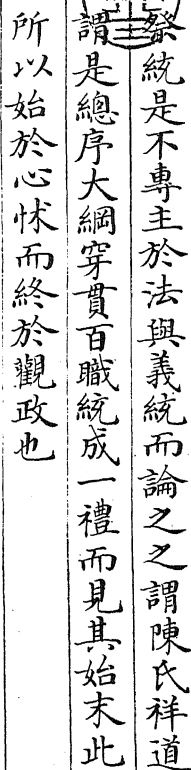 祭統是不專主於法與義統而論之之謂陳氏祥道
謂是總序大綱穿貫百職統成一禮而見其始末此
所以始於心怵而終於觀政也